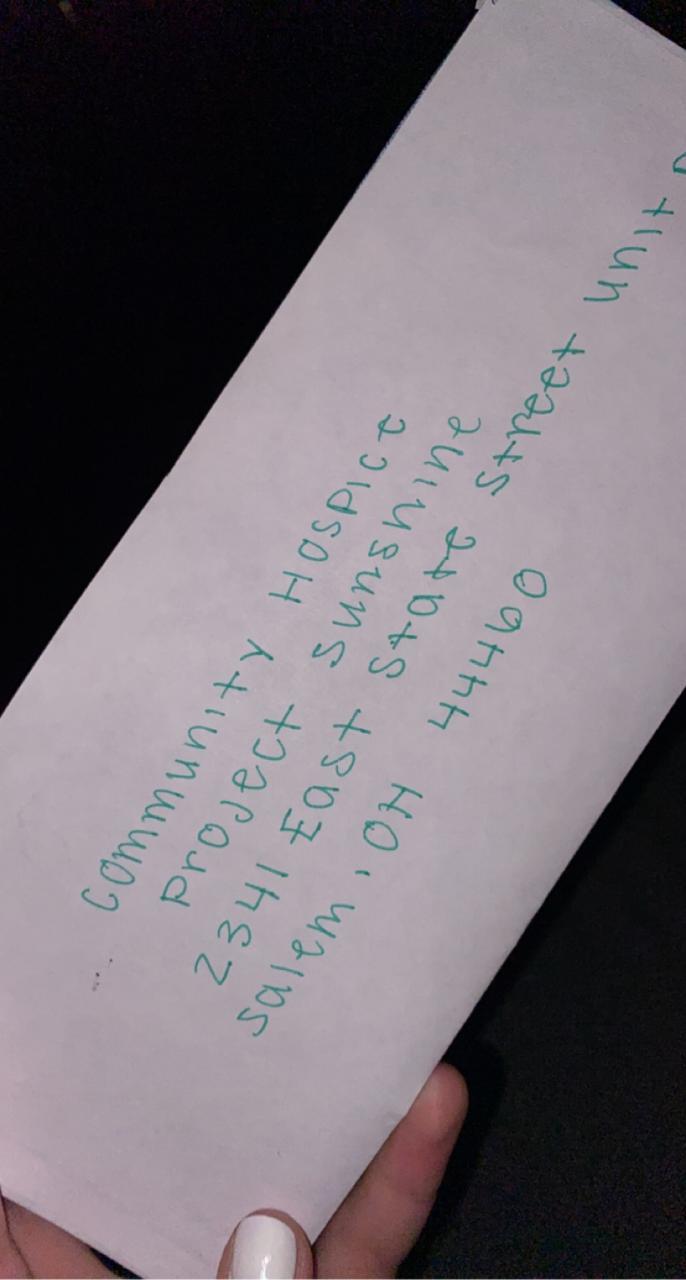 Community Hospice
Project Sunshine
2341 East State Street Unit
Salem, OH 44460